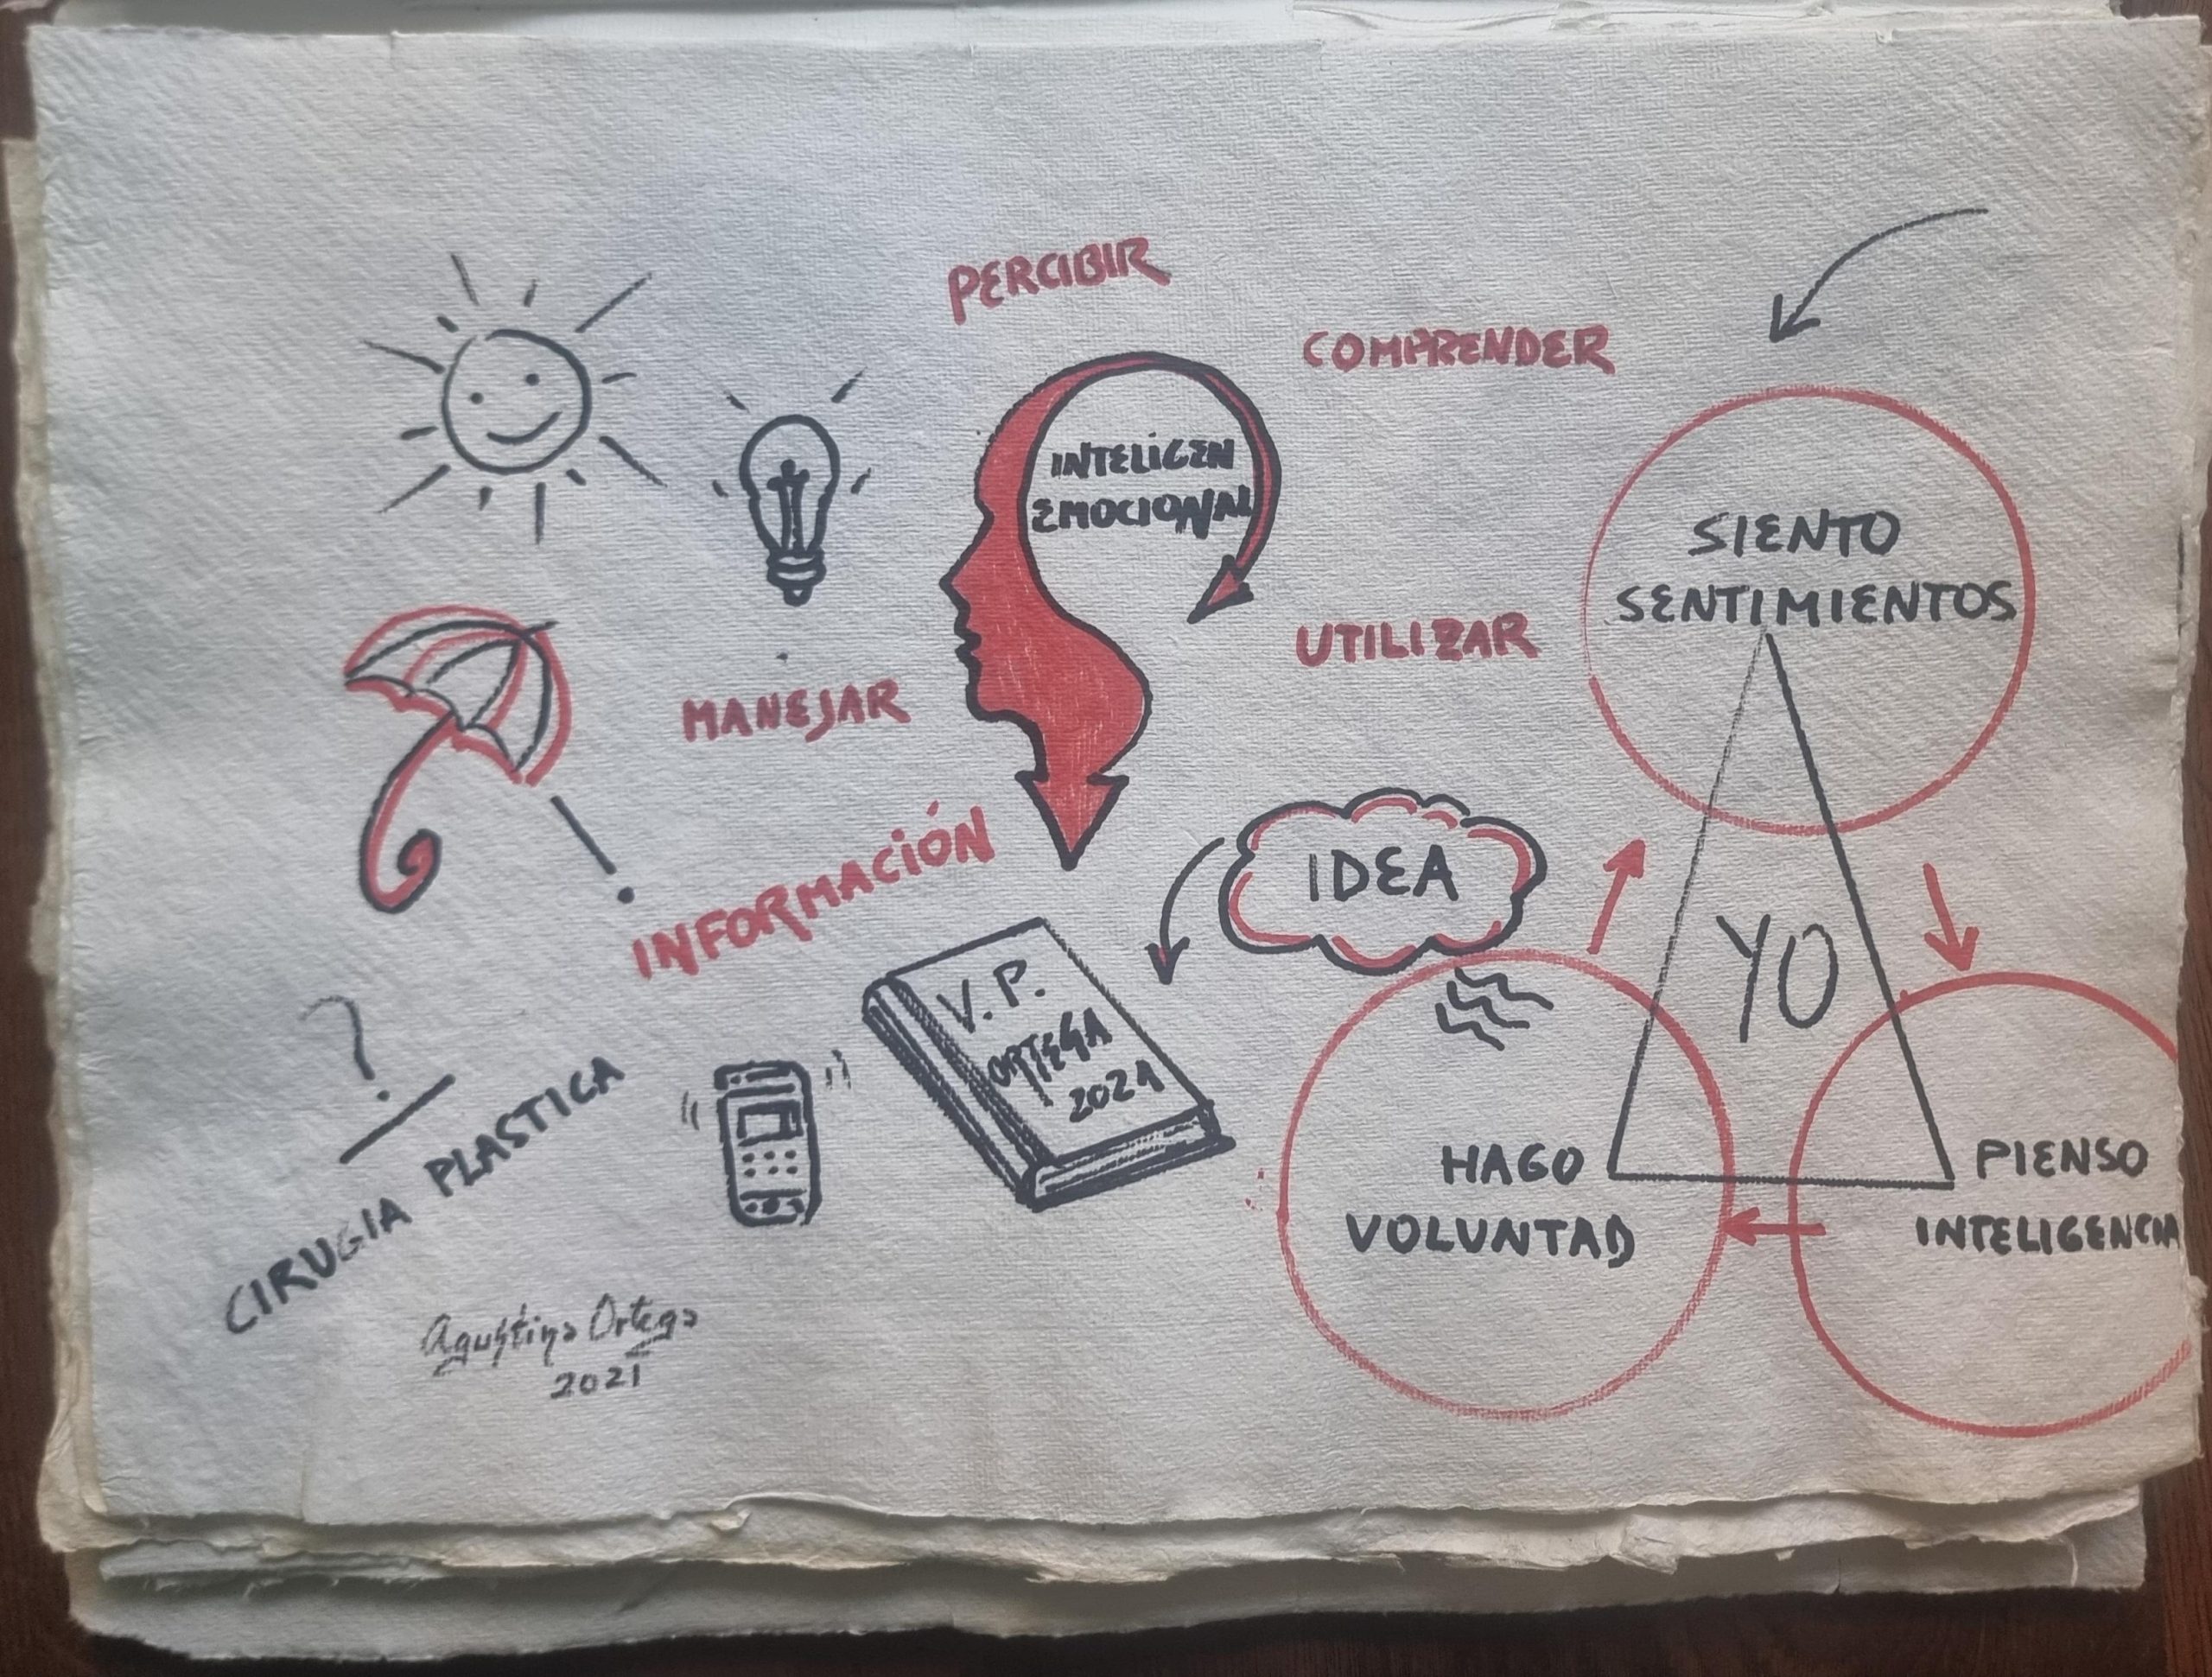 PERCIBIR
COMPRENDER
INTELIGEN
EMOCIONAL
UTILIZAR
MANEJAR
INFORMACIÓN
SIENTO
SENTIMIENTOS
IDEA
YO
V. P.
ORTEGA
2021
HAGO
VOLUNTAD
PIENSO
INTELIGENCIA
?
CIRUGIA PLASTICA
Agustina Ortega
2021